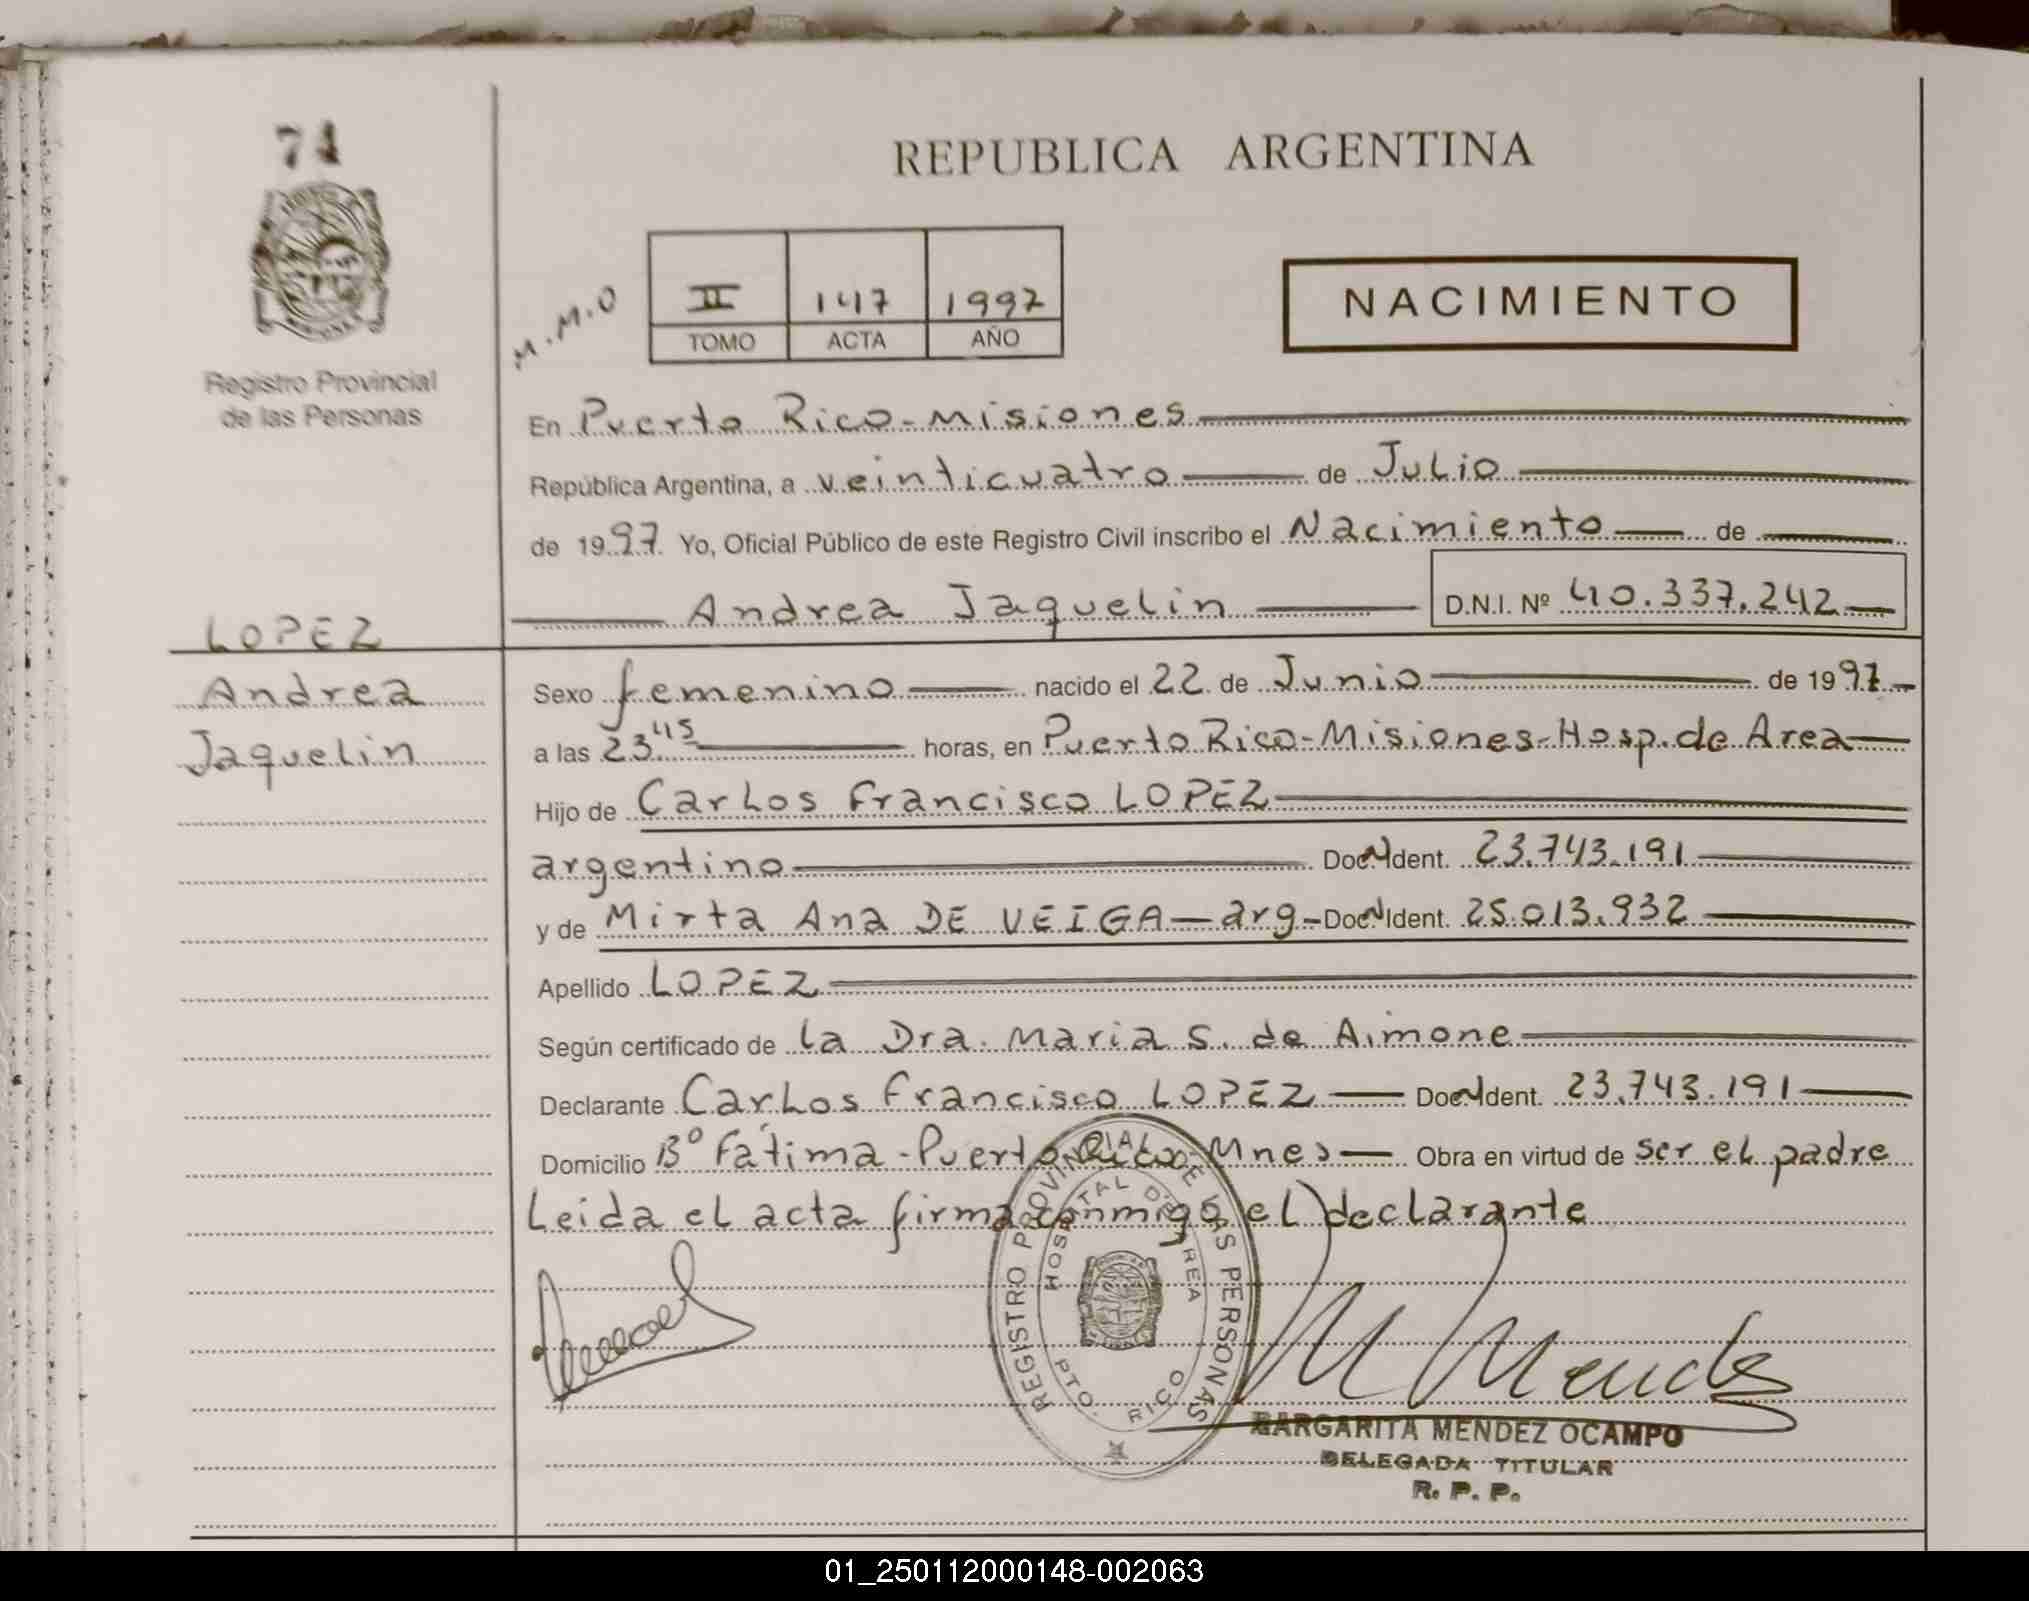 74
REPUBLICA ARGENTINA
II 147 1997
TOMO ACTA AÑO
M.M.O
NACIMIENTO
Registro Provincial
de las Personas
En Puerto Rico-Misiones
República Argentina, a veinticuatro de Julio
de 1997 Yo, Oficial Público de este Registro Civil inscribo el Nacimiento de
Andrea Jaquelin D.N.I. Nº 40.337.242
LOPEZ
Andrea
Jaquelin
Sexo femenino nacido el 22 de Junio de 1997
a las 23 45 horas, en Puerto Rico-Misiones-Hosp. de Area
Hijo de Carlos Francisco LOPEZ
argentino Doc N Ident. 23.743.191
y de Mirta Ana DE VEIGA - arg - Doc N Ident. 25.013.932
Apellido LOPEZ
Según certificado de la Dra. Maria S. de Aimone
Declarante Carlos Francisco LOPEZ Doc N Ident. 23.743.191
Domicilio Bº Fátima - Puerto Rico Mnes Obra en virtud de ser el padre
Leida el acta firma conmigo el declarante
REGISTRO PROVINCIAL DE LAS PERSONAS
HOSPITAL DE AREA
PTO. RICO
M Mendez
MARGARITA MENDEZ OCAMPO
DELEGADA TITULAR
R. P. P.
01_250112000148-002063